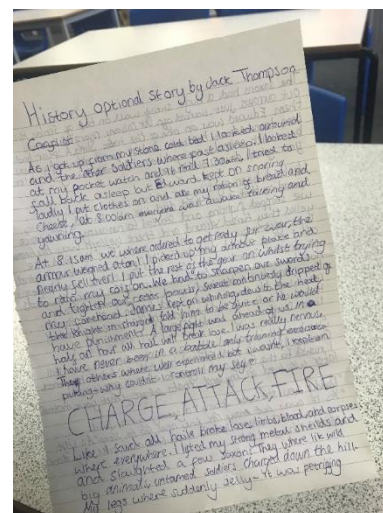 History optional story by Jack Thompson
Conflict
As I got up from my stone cold bed I looked arround
and the other soldiers where past asleep. I looked
at my pocket watch and it read 7:30am, I tried to
fall back asleep but Edward kept on snoring
loudly I put clothes on and ate my ration of bread and
cheese, at 8:00am everyone was awake talking and
yawning.
At 8:15am we where ordered to get ready for war, the
armour weighed a ton! I picked up my armour plate and
nearly fell over! I put the rest of the gear on whilst trying
to rap my coif on. We had to sharpen our swords
and tighten our
my forehead. James kept on whining due to the heat,
the knight in charge told him to be quite or he would
have punishment. A large fight was ahead of us in
half an hour all hell will break lose. I was really nervous,
I have never been in a battle only training embarace
The others where well experienced but I wasn't, I kept on
puking why couldn't I controll my self
CHARGE, ATTACK, FIRE
Like I said all hails broke lose, limbs, blood and corpses
where everywhere. I lifted my strong metal sheilds and
and slaughted a few saxons. They where lik wild
big animals, untamed soldiers charged down the hill.
My legs where suddenly jelly - It was petrifing